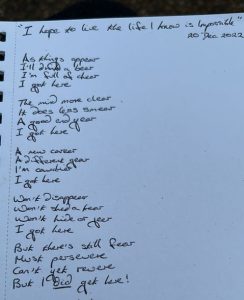 "I hope to live the life I know is Impossible"
20 Dec 2022
As things appear
I'll a bear
I'm full of cheer
I got here
The mind more clear
It does less smear
A good end year
I got here
A new career
A different gear
I'm
I got here
Won't disappear
Won't shed a tear
Won't hide or jeer
I got here
But there's still fear
Must persevere
Can't yet revere
But I Did get here!